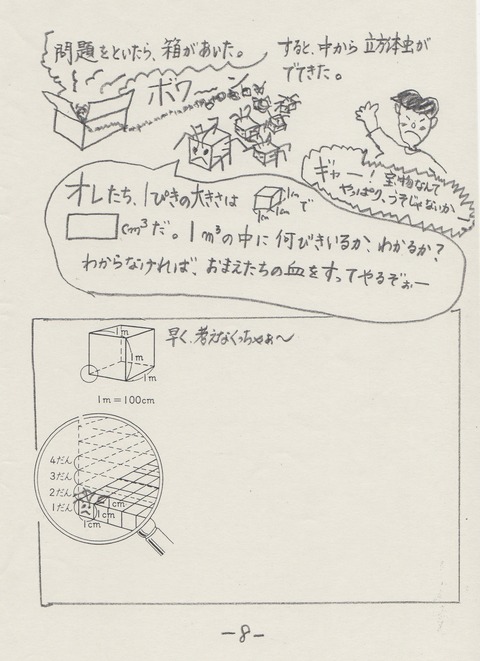 問題をといたら、箱があいた。
すると、中から立方体虫が
でてきた。
ボワーン
ギャー!宝物なんて
やっぱり、うそじゃないかー
オレたち、1ぴきの大きさは
1m
1m 1m
で
cm³だ。1m³の中に何びきいるか、わかるか?
わからなければ、おまえたちの血をすってやるぞぉー
早く、考えなくっちゃぁ〜
1m
1m
1m
1m=100cm
4だん
3だん
2だん
1だん
1cm
1cm
1cm
-8-